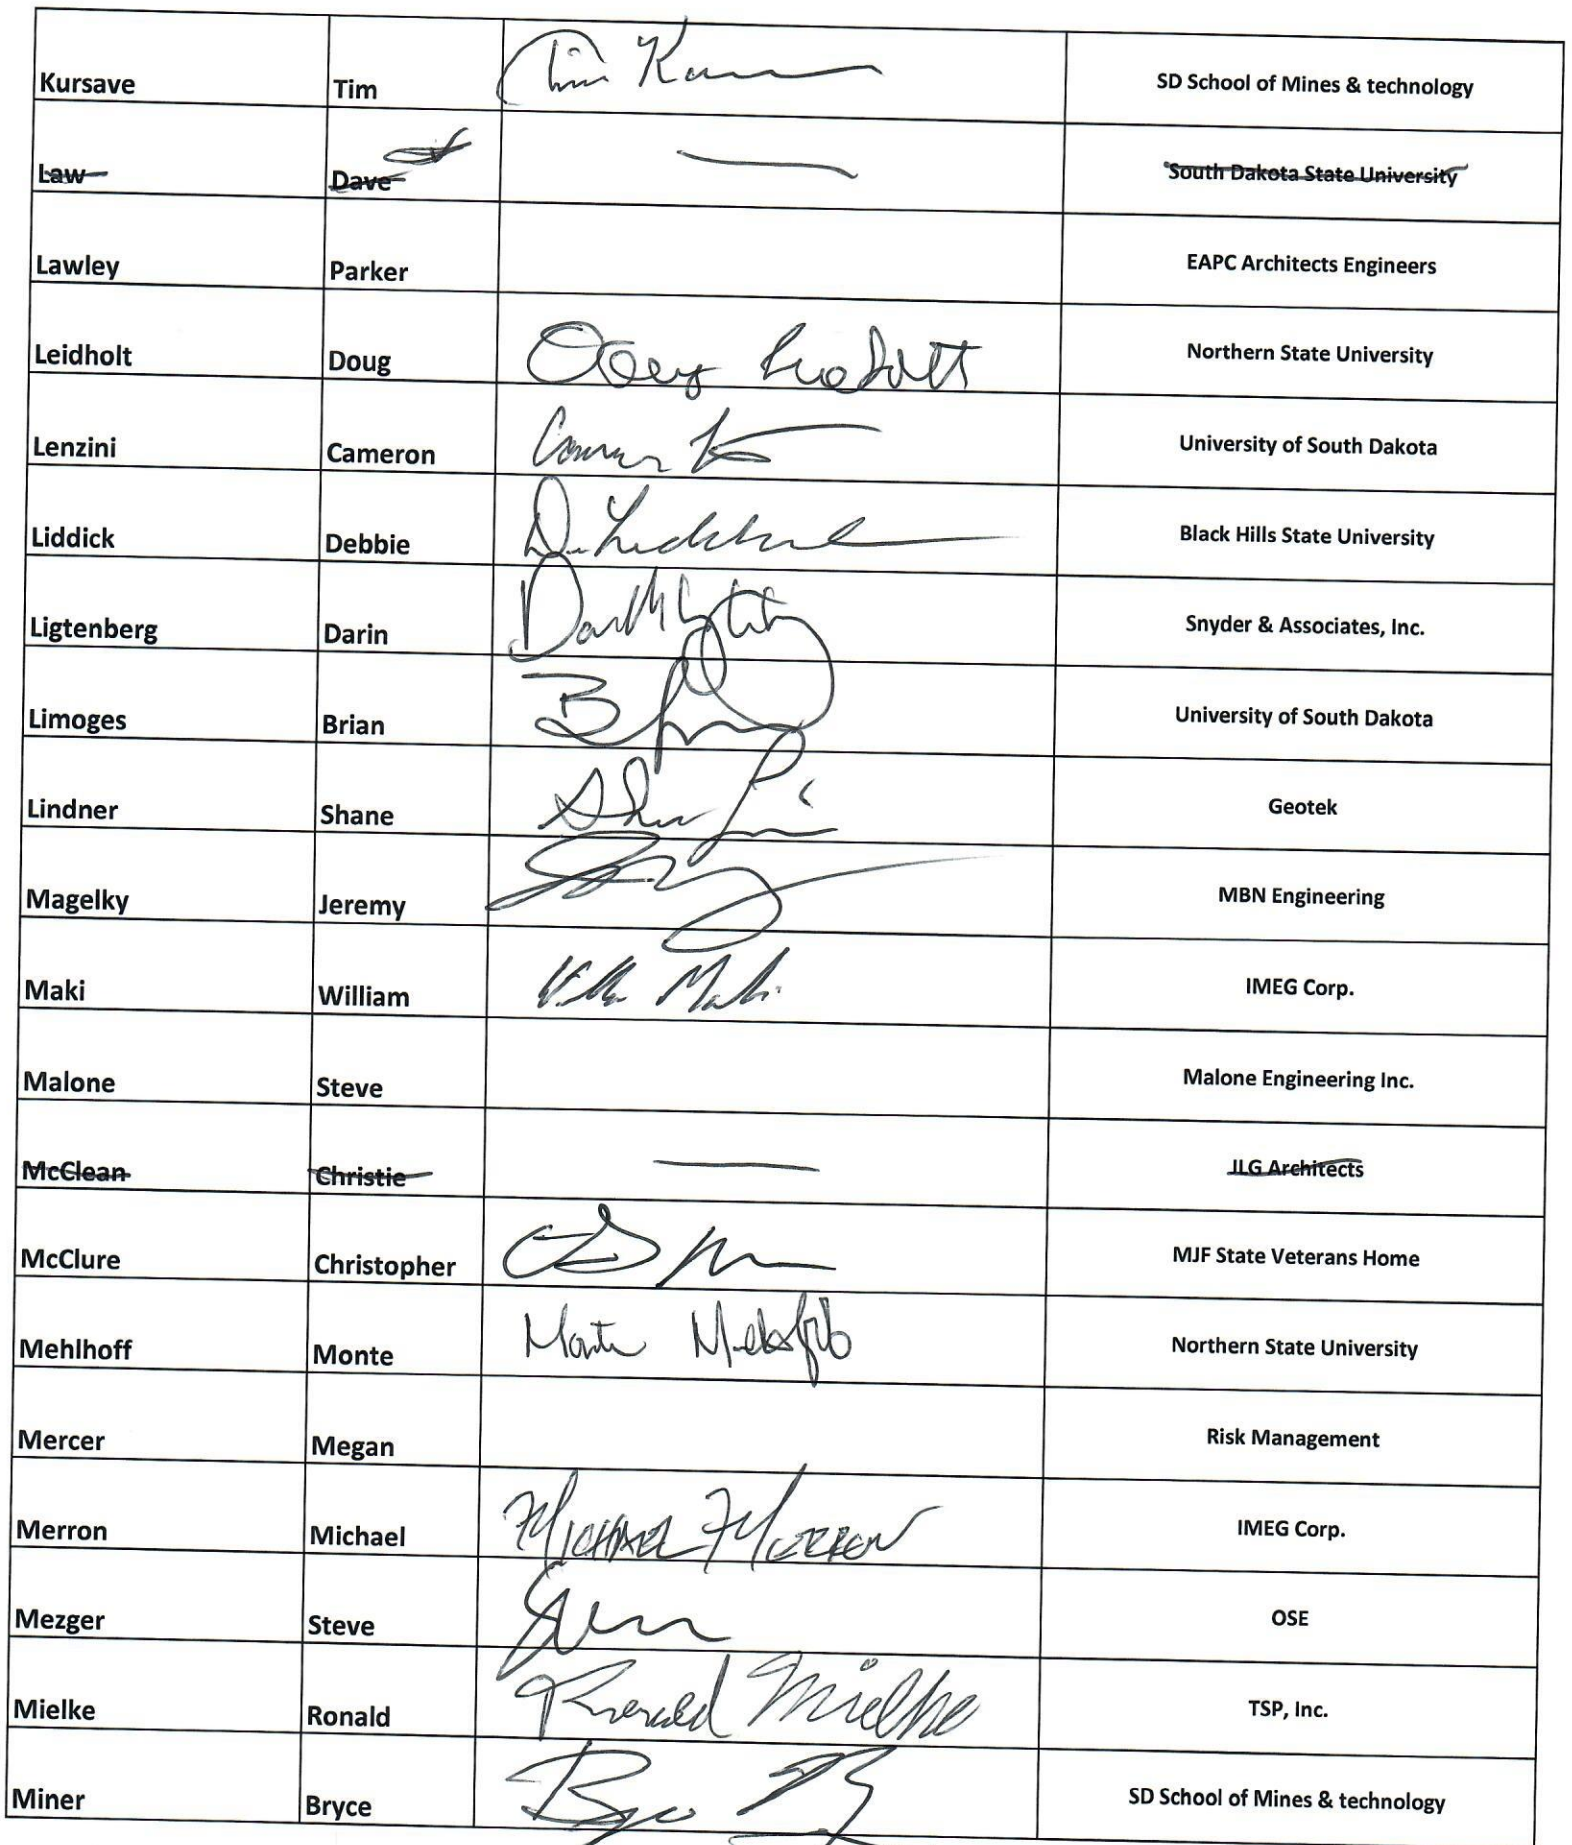 Kursave Tim Tim SD School of Mines & technology
Law Dave South Dakota State University
Lawley Parker EAPC Architects Engineers
Leidholt Doug Doug Northern State University
Lenzini Cameron University of South Dakota
Liddick Debbie D. Black Hills State University
Ligtenberg Darin Snyder & Associates, Inc.
Limoges Brian B University of South Dakota
Lindner Shane Shane Geotek
Magelky Jeremy MBN Engineering
Maki William Maki IMEG Corp.
Malone Steve Malone Engineering Inc.
McClean Christie JLG Architects
McClure Christopher MJF State Veterans Home
Mehlhoff Monte Monte Northern State University
Mercer Megan Risk Management
Merron Michael Michael Merron IMEG Corp.
Mezger Steve OSE
Mielke Ronald Ronald Mielke TSP, Inc.
Miner Bryce SD School of Mines & technology